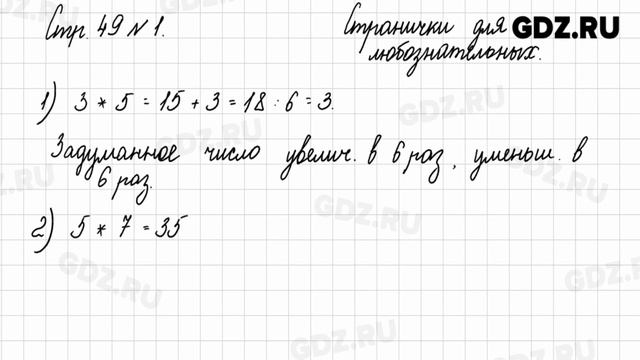 Стр. 49 № 1.
Странички для
любознательных.
GDZ.RU
1) 3 * 5 = 15 + 3 = 18 : 6 = 3.
Задуманное число увелич. в 6 раз, уменьш. в
6 раз.
2) 5 * 7 = 35
GDZ.RU
GDZ.RU
GDZ.RU
GDZ.RU
GDZ.RU